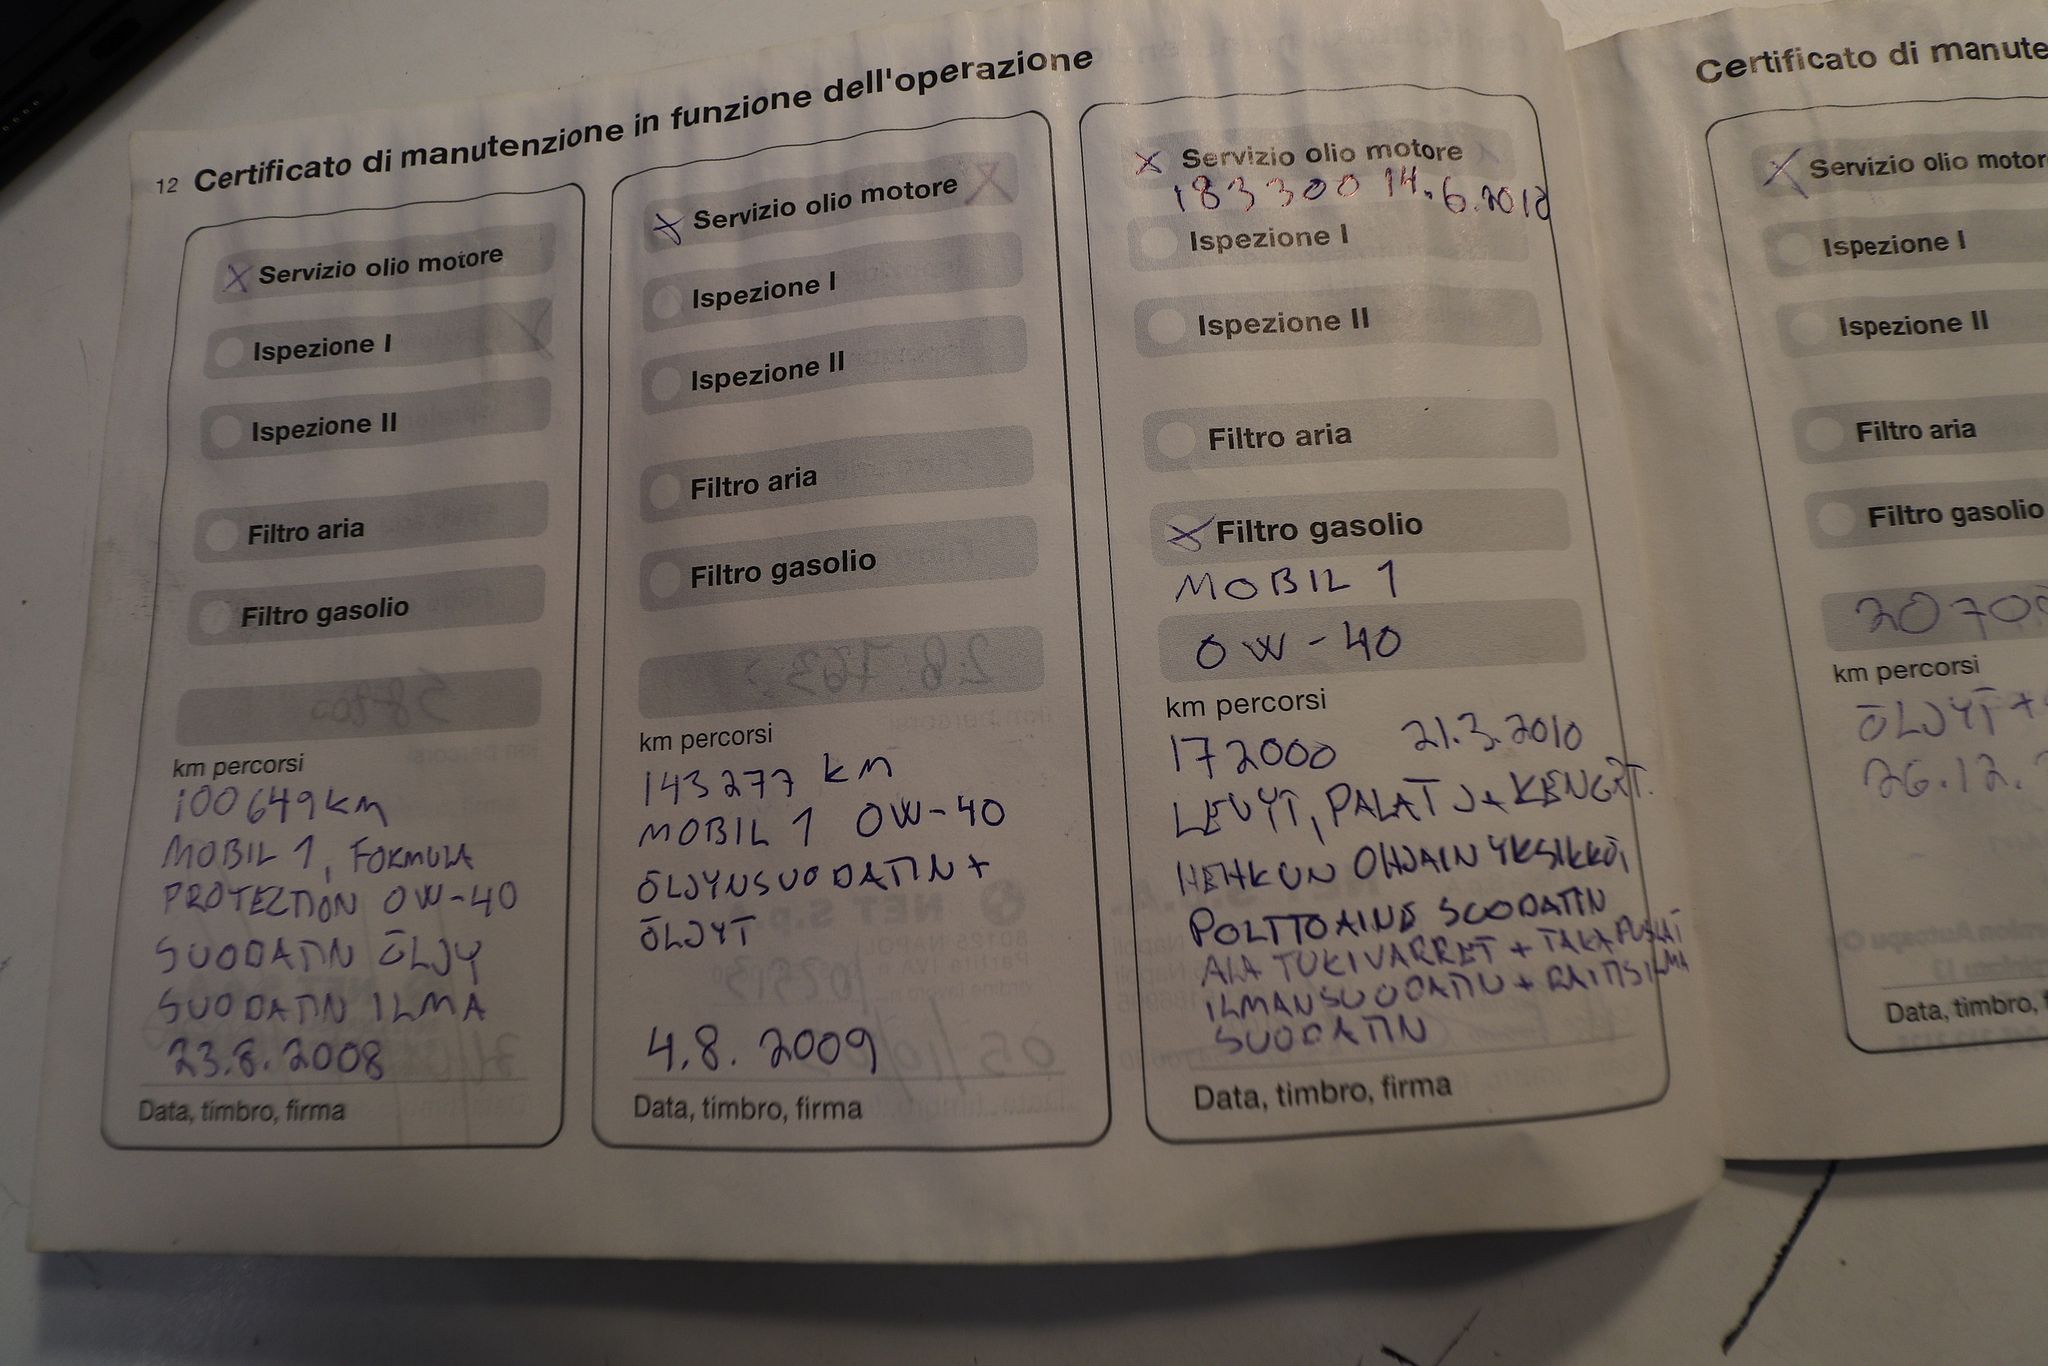 12 Certificato di manutenzione in funzione dell'operazione
X Servizio olio motore
Ispezione I
Ispezione II
Filtro aria
Filtro gasolio
km percorsi
100649 KM
MOBIL 1, FORMULA
PROTECTION 0W-40
SUODATIN ÖLJY
SUODATIN ILMA
23.8.2008
Data, timbro, firma
X Servizio olio motore
Ispezione I
Ispezione II
Filtro aria
Filtro gasolio
km percorsi
143277 KM
MOBIL 1 0W-40
ÖLJYNSUODATIN +
ÖLJYT
4.8. 2009
Data, timbro, firma
X Servizio olio motore
183300 14.6.2010
Ispezione I
Ispezione II
Filtro aria
X Filtro gasolio
MOBIL 1
0W-40
km percorsi
172000 21.3.2010
LEVYT, PALAT JA KENGÄT.
HEHKUN OHJAIN YKSIKKÖ,
POLTTOAINE SUODATIN
ALA TUKIVARRET + TAKA PUSLAT
ILMANSUODATIN + RAITISILMA
SUODATIN
Data, timbro, firma
Certificato di manute
X Servizio olio motor
Ispezione I
Ispezione II
Filtro aria
Filtro gasolio
2070
km percorsi
ÖLJYT +
26.12.
Data, timbro, f